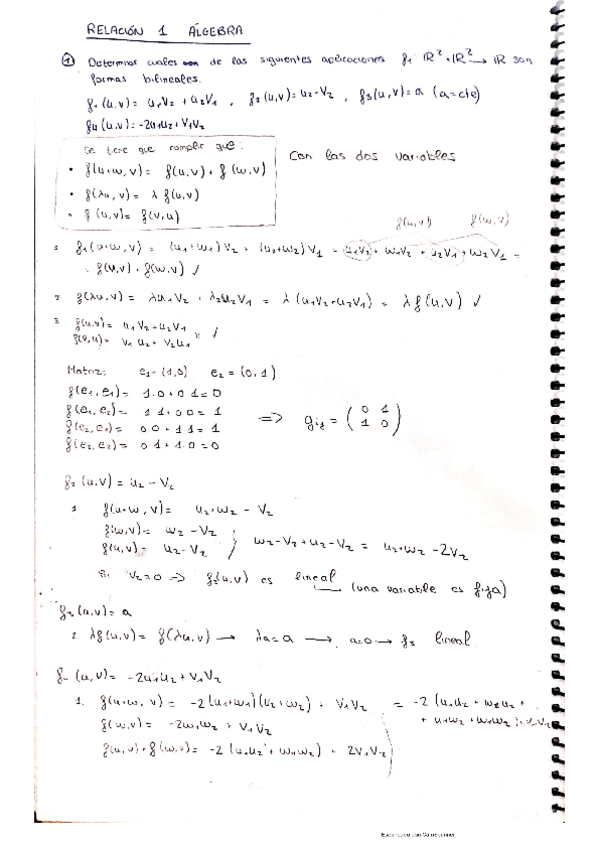 RELACIÓN 1 ÁLGEBRA
① Determinar cuales de las siguientes aplicaciones f: ℝ²×ℝ² → ℝ son
formas bilineales.
f₁(u,v) = u₁v₂ + u₂v₁ , f₂(u,v) = u₂-v₂ , f₃(u,v) = a (a=cte)
f₄(u,v) = -2u₁u₂ + v₁v₂
Se tiene que cumplir que:
• f(u+w, v) = f(u,v) + f(w,v)
Con las dos variables
• f(λu, v) = λ f(u,v)
• f(u,v) = f(v,u)
f(u,v) f(w,v)
1 f₁(u+w, v) = (u₁+w₁)v₂ + (u₂+w₂)v₁ = u₁v₂ + w₁v₂ + u₂v₁ + w₂v₁ =
= f(u,v) + f(w,v) ✓
2 f(λu,v) = λu₁v₂ + λu₂v₁ = λ(u₁v₂+u₂v₁) = λf(u,v) ✓
3 f(u,v) = u₁v₂ + u₂v₁
f(v,u) = v₁u₂ + v₂u₁ ✓
Matriz: e₁ = (1,0) e₂ = (0,1)
f(e₁,e₁) = 1·0+0·1=0
f(e₁,e₂) = 1·1+0·0=1
f(e₂,e₁) = 0·0+1·1=1
f(e₂,e₂) = 0·1+1·0=0
=> gij = (0 1
1 0)
f₂(u,v) = u₂ - v₂
1 f(u+w,v) = u₂+w₂ - v₂
f(w,v) = w₂ - v₂
f(u,v) = u₂-v₂ } w₂-v₂+u₂-v₂ = u₂+w₂-2v₂
Si v₂=0 => f₂(u,v) es lineal
(una variable es fija)
f₃(u,v) = a
2 λf(u,v) = f(λu,v) → λa=a → a=0 → f₃ lineal
f₄(u,v) = -2u₁u₂ + v₁v₂
1. f(u+w, v) = -2(u₁+w₁)(u₂+w₂) + v₁v₂ = -2(u₁u₂ + w₁u₂ +
+ u₁w₂ + w₁w₂) + v₁v₂
f(w,v) = -2w₁w₂ + v₁v₂
f(u,v)+f(w,v) = -2(u₁u₂ + w₁w₂) + 2v₁v₂
Escaneado con CamScanner